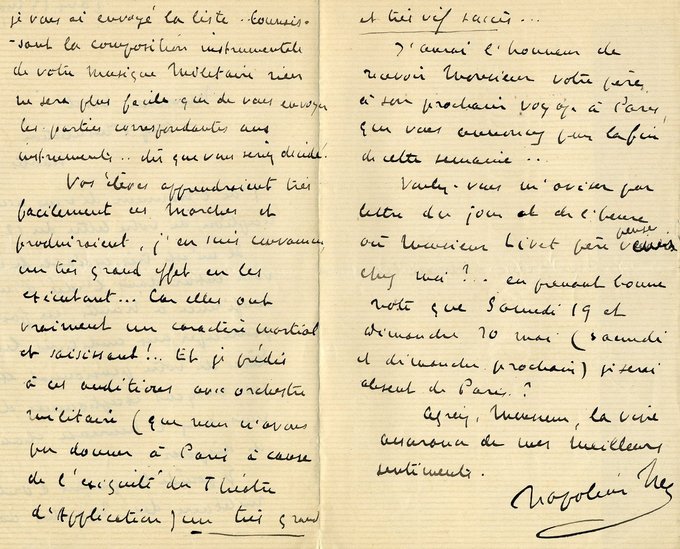 je vous ai envoyé la liste.. Connais-
-sant la composition instrumentale
de votre musique militaire rien
ne sera plus facile que de vous envoyer
les parties correspondantes aux
instruments.. dès que vous serez décidé.
Vos élèves apprendraient très
facilement ces Marches et
produiraient, j'en suis convaincu,
un très grand effet en les
exécutant... Car elles ont
vraiment un caractère martial
et saisissant!.. Et je prédis
à ces auditions avec orchestre
militaire (que nous n'avons
pu donner à Paris à cause
de l'exiguité du Théâtre
d'Application) un très grand
et très vif succès...
J'aurai l'honneur de
recevoir Monsieur votre père,
à son prochain voyage à Paris,
que vous annoncez pour la fin
de cette semaine...
Voulez-vous m'aviser par
lettre du jour et de l'heure
où Monsieur Livet père
chez moi?... en prenant bonne
note que Samedi 19 et
dimanche 20 mai (samedi
et dimanche prochain) je serai
absent de Paris.?
Agréez, Monsieur, la vive
assurance de mes meilleurs
sentiments.
Napoléon Ney